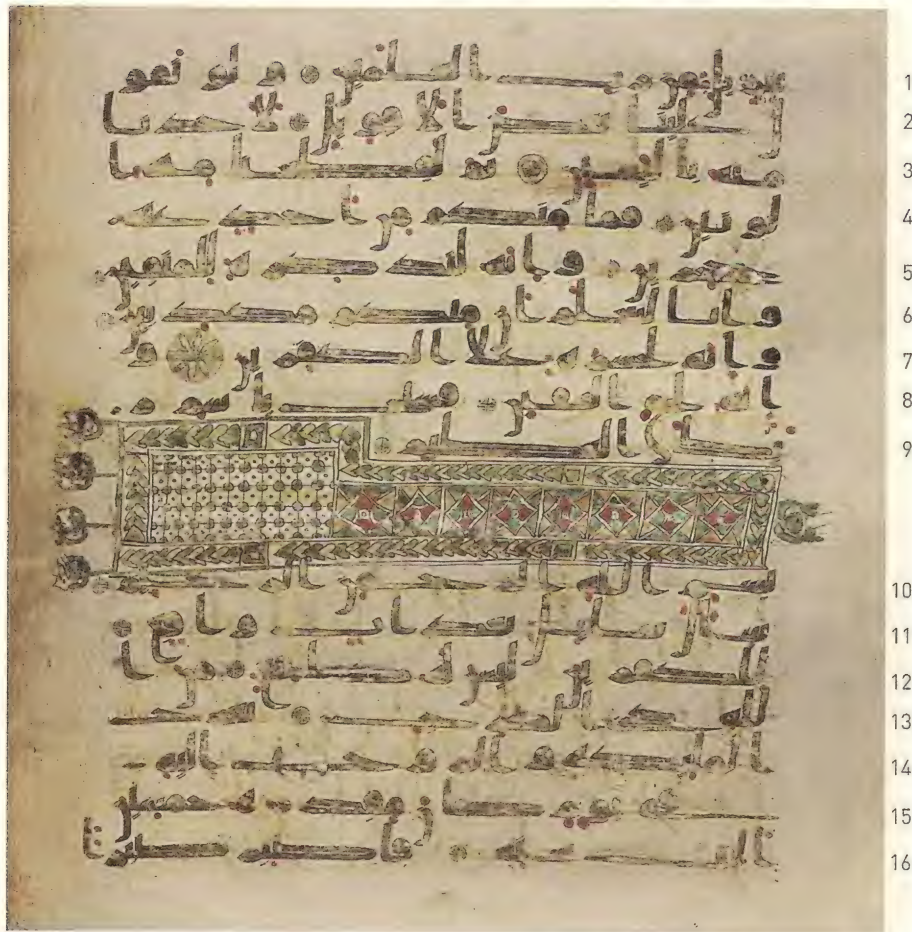 تنزيل من رب العلمين ولو تقو 1
ل علينا بعض الاقاويل لاخذنا 2
منه باليمين ثم لقطعنا منه ا 3
لوتين فما منكم من احد عنه 4
حجزين وانه لتذكرة للمتقين 5
وانا لنعلم ان منكم مكذبين 6
وانه لحسرة على الكفرين و 7
انه لحق اليقين فسبح باسم ر 8
بك العظيم 9
بسم الله الرحمن الرحيم 10
سال سايل بعذاب واقع 11
للكفرين ليس له دافع من ا 12
لله ذي المعارج تعرج 13
الملئكة والروح اليه في يو 14
م كان مقداره خمسين 15
الف سنة فاصبر صبرا 16